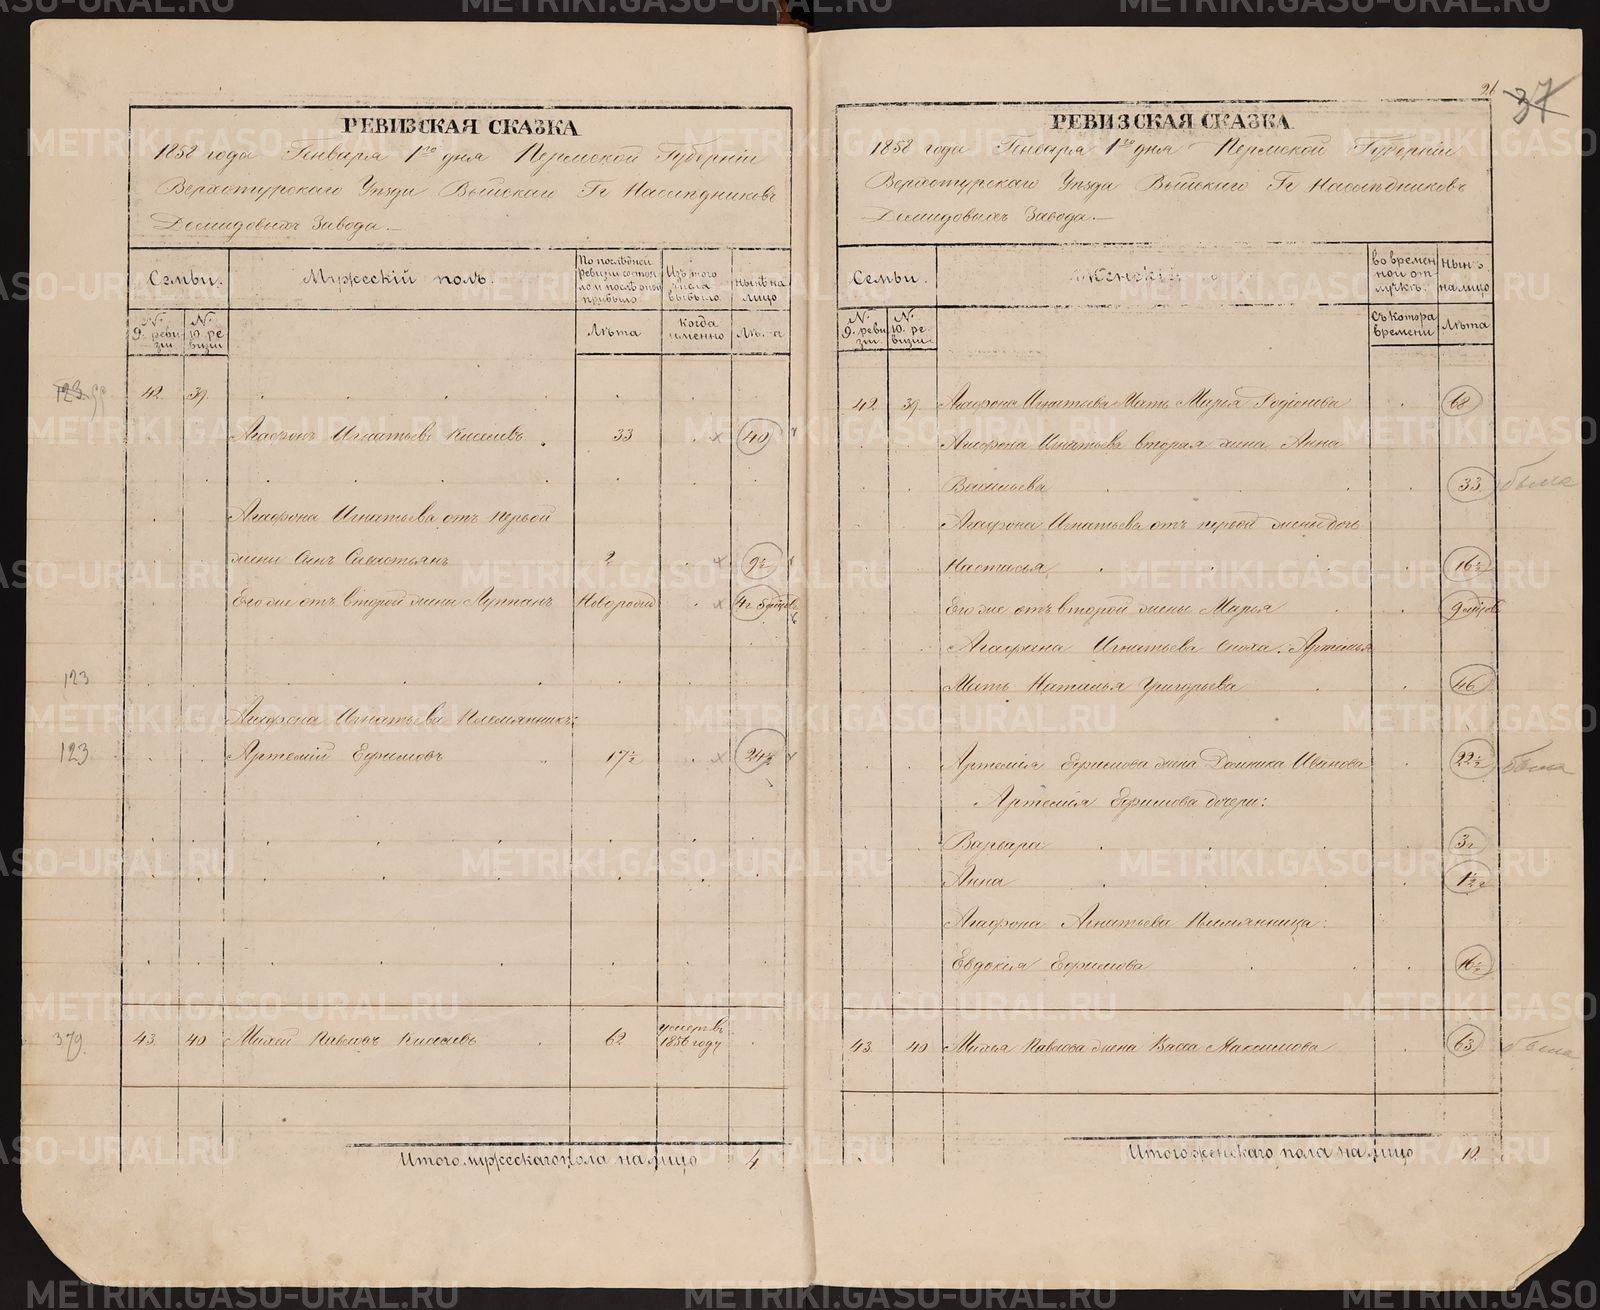 РЕВИЗСКАЯ СКАЗКА
1858 года Генваря 1го дня Пермской Губерніи
Верхотурскаго Уѣзда Выйскаго Гг Наслѣдниковъ
Демидовыхъ Завода.
Семьи.
Мужескій полъ.
По послѣдней ревизіи состояло и послѣ оной прибыло
Изъ того числа выбыло
Нынѣ на лицо
№ 9. ревизіи
№ 10. ревизіи
Лѣта
Когда именно
Лѣта
123
42 39
Агафонъ Игнатьевъ Киселевъ 33 40
Агафона Игнатьева отъ первой
жены Сынъ Савастьянъ 2 9½
Его же отъ второй жены Луппанъ Новорожд 4г
123
Агафона Игнатьева Племянникъ:
123
Артемій Ефимовъ 17½ 24½
379
43 40 Михей Павловъ Киселевъ 62 умеръ въ 1856 году
Итого мужескаго пола на лицо 4
26
37
РЕВИЗСКАЯ СКАЗКА
1858 года Генваря 1го дня Пермской Губерніи
Верхотурскаго Уѣзда Выйскаго Гг Наслѣдниковъ
Демидовыхъ Завода.
Семьи.
Женскій
во временной отлучкѣ
Нынѣ на лицо
№ 9. ревизіи
№ 10. ревизіи
Съ котора времени
Лѣта
42 39 Агафона Игнатьева Мать Марья Родіонова 68
Агафона Игнатьева вторая жена Анна
Васильева 33
Агафона Игнатьева отъ первой жены дочь
Настасья 16½
Его же отъ второй жены Марья 9
Агафона Игнатьева Сноха. Артемья
Мать Наталья Григорьева 46
Артемія Ефимова жена Домника Иванова 22½
Артемія Ефимова дочери:
Варвара 3г
Анна 1½г
Агафона Игнатьева Племянница:
Евдокія Ефимова 16½
43 40 Михея Павлова жена Васса Максимова 63
Итого женскаго пола на лицо 10
METRIKI.GASO-URAL.RU